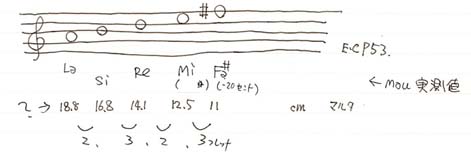 #
E.CP53.
La Si Re Mi Fa#
( ) (-20セント) ←Mou 実測値
→ 18.8 16.8 14.1 12.5 11 cm マルタ
2, 3, 2, 3フレット